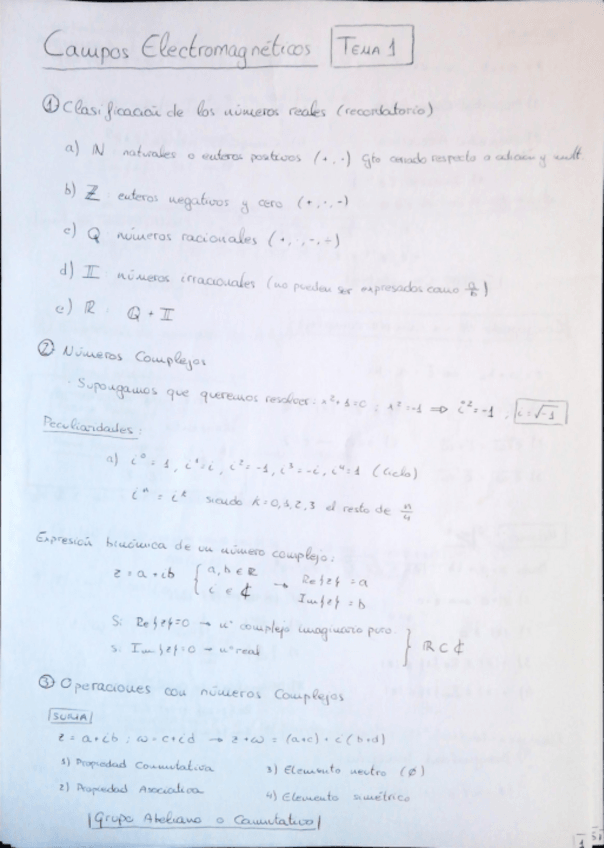 Campos Electromagnéticos TEMA 1
① Clasificación de los números reales (recordatorio)
a) ℕ naturales o enteros positivos (+, ·) Gto cerrado respecto a adición y mult.
b) ℤ enteros negativos y cero (+, ·, -)
c) Q números racionales (+, ·, -, ÷)
d) 𝕀 números irracionales (no pueden ser expresados como a/b)
e) ℝ ℚ + 𝕀
② Números Complejos
· Supongamos que queremos resolver: x²+1=0 ; x²=-1 ⇒ i²=-1 ; i=√-1
Peculiaridades:
a) i⁰=1, i¹=i, i²=-1, i³=-i, i⁴=1 (Ciclo)
iⁿ = iᵏ siendo k=0,1,2,3 el resto de n/4
Expresión binómica de un número complejo:
z = a + ib { a, b ∈ ℝ → Re{z} = a
i ∈ ℂ Im{z} = b
Si Re{z}=0 → nº complejo imaginario puro
si Im{z}=0 → nº real } ℝ ⊂ ℂ
③ Operaciones con números Complejos
SUMA
z = a+ib ; ω = c+id → z+ω = (a+c) + i(b+d)
1) Propiedad Conmutativa 3) Elemento neutro (ϕ)
2) Propiedad Asociativa 4) Elemento simétrico
Grupo Abeliano o Conmutativo
1